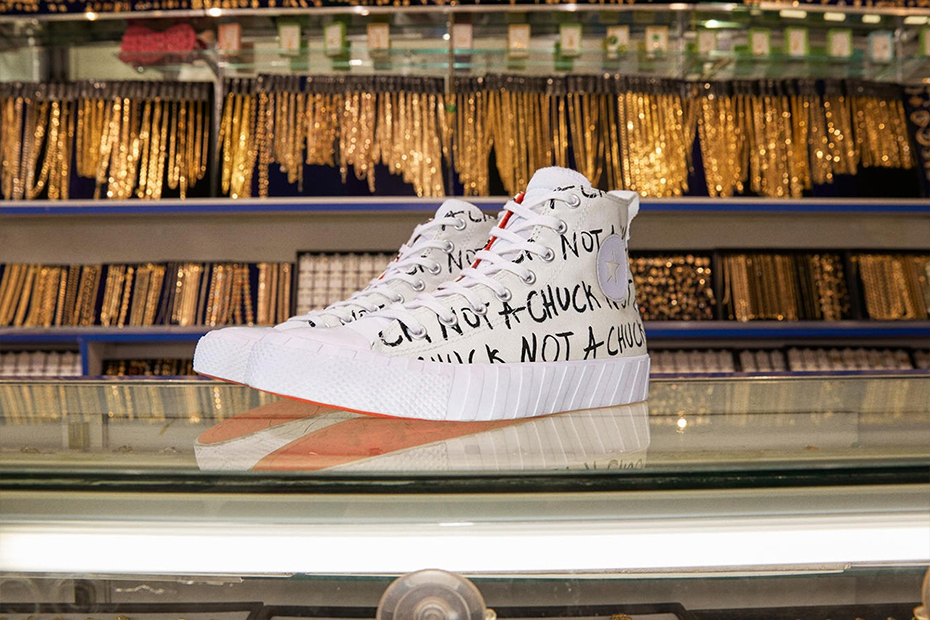 NOT A
NOT
NOT A CHUCK NOT
CHUCK NOT A CHUCK